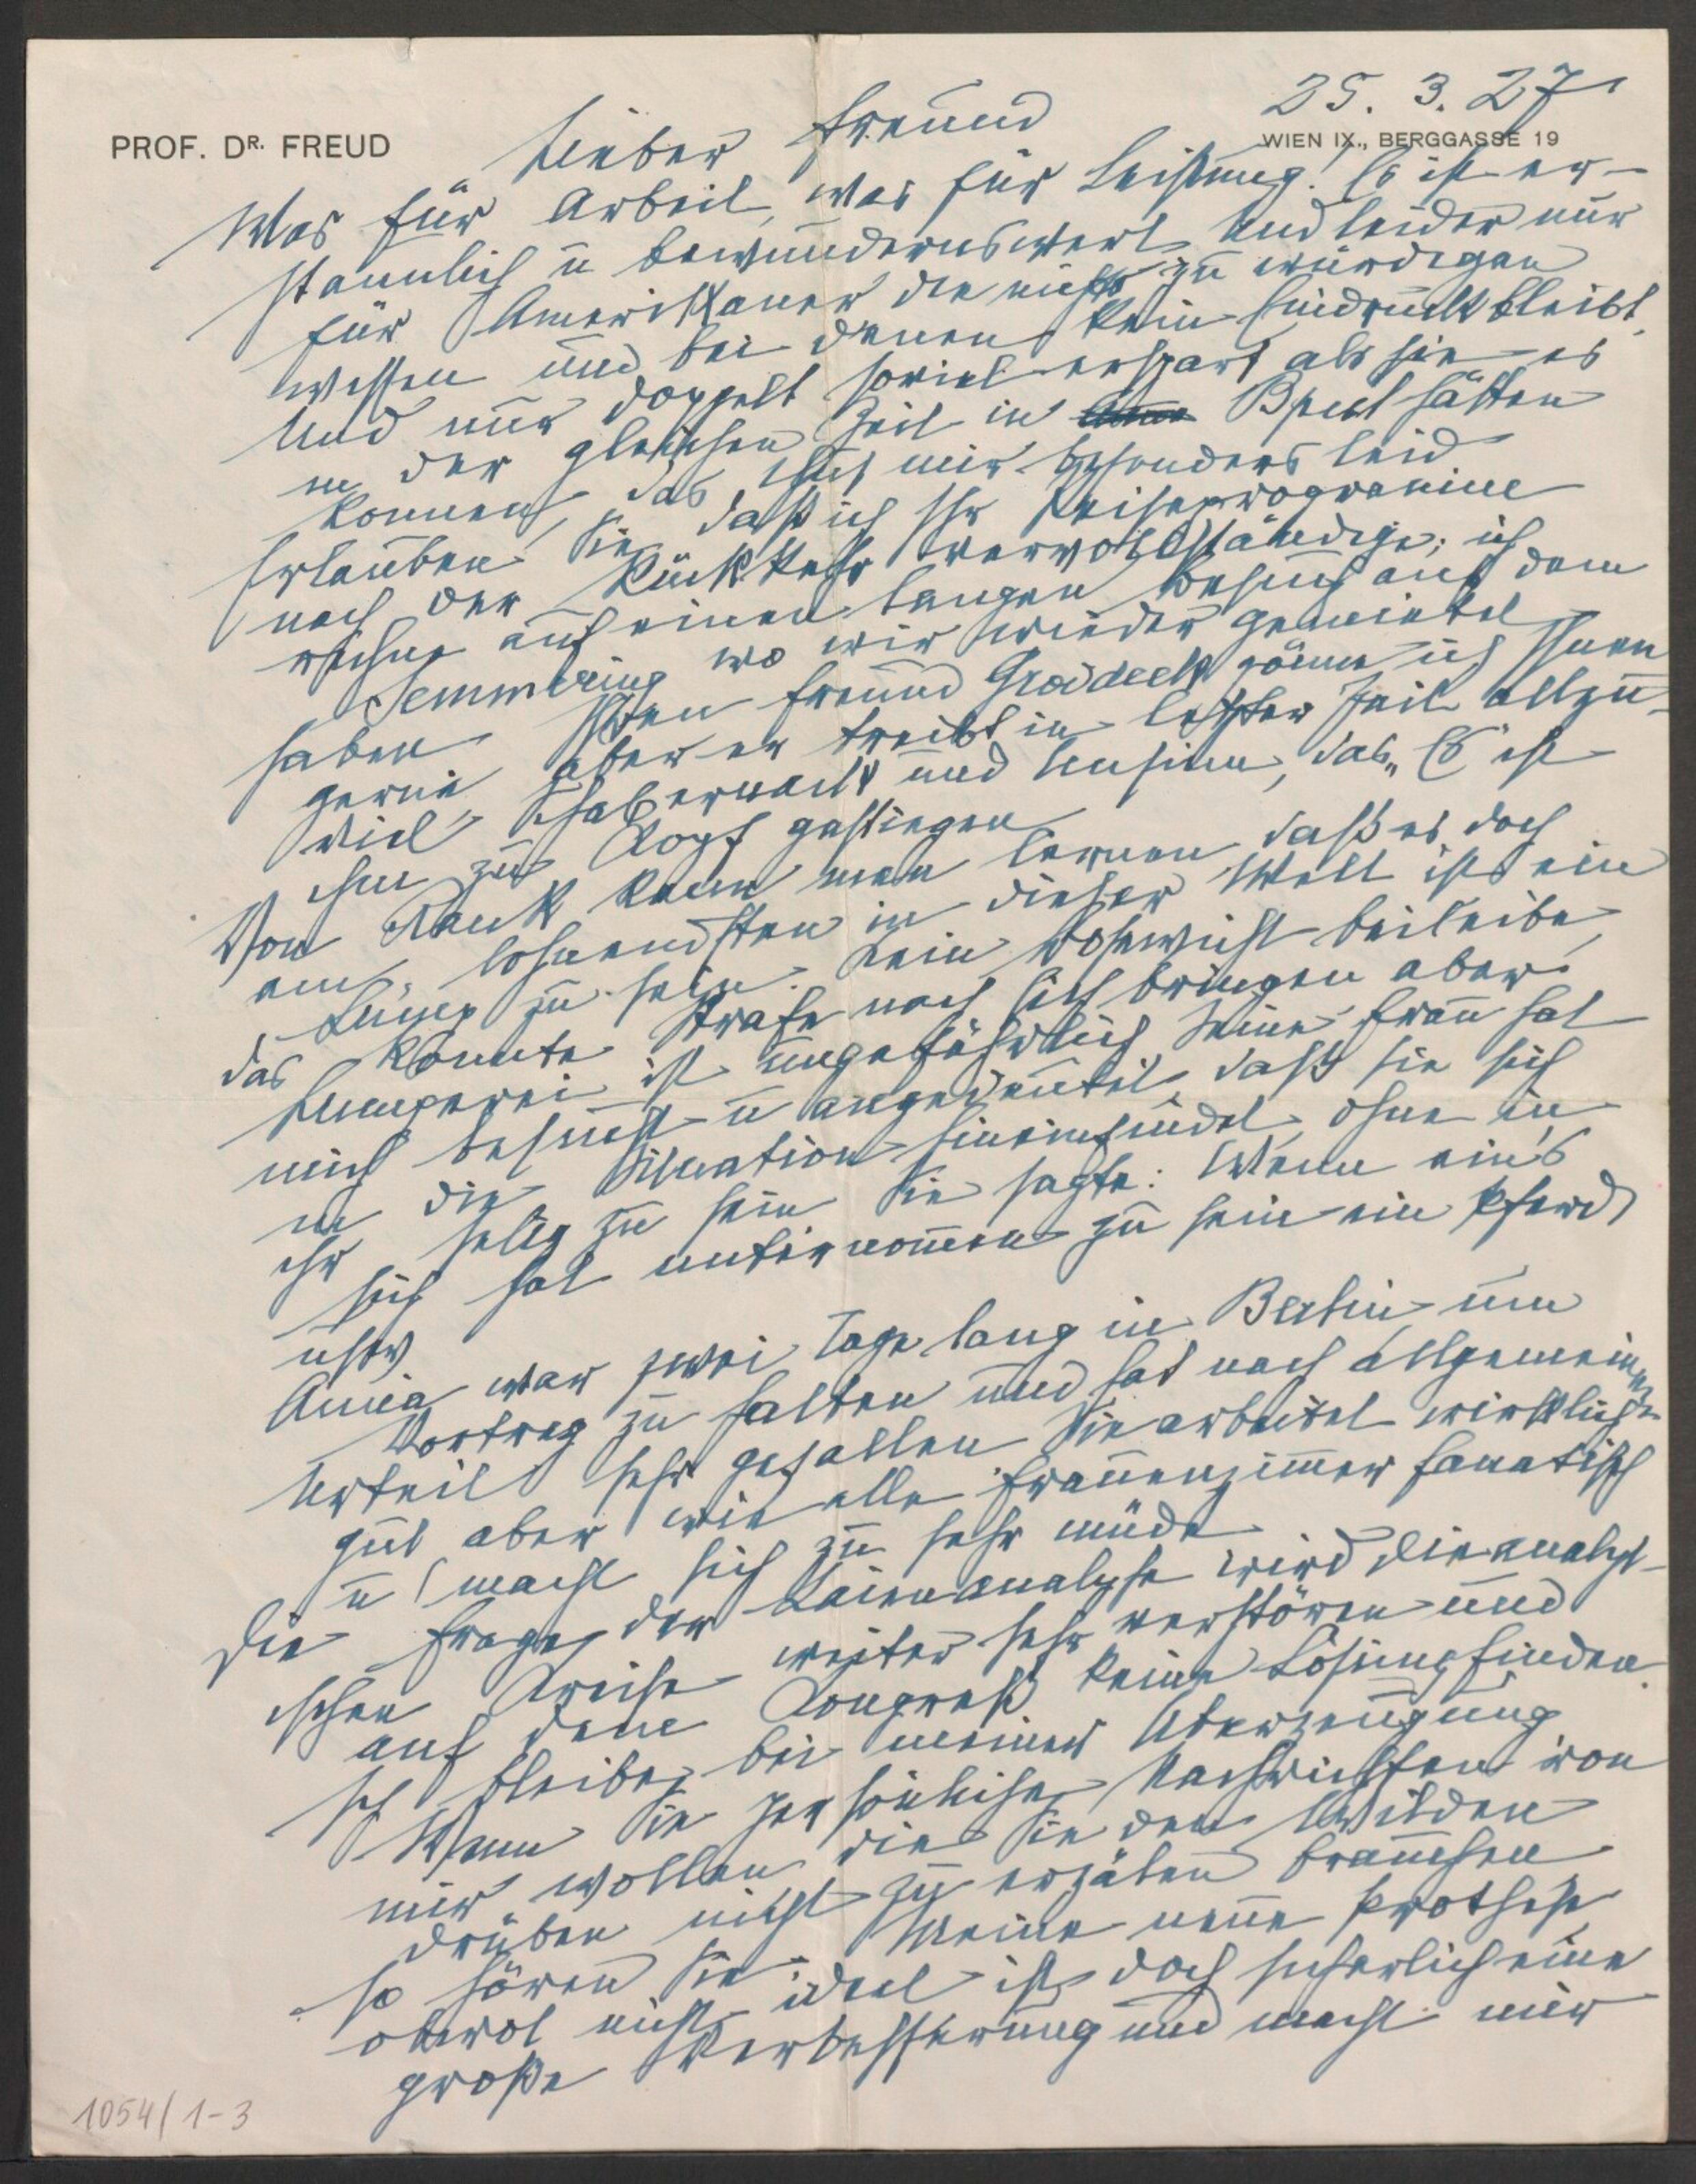 25. 3. 27
PROF. DR. FREUD
WIEN IX., BERGGASSE 19
Lieber Freund
Was für Arbeit, was für Leistung! Es ist er-
staunlich u bewundernswert. Und leider nur
für Amerikaner die nichts zu würdigen
wissen und bei denen kein Eindruck bleibt.
Und nur doppelt soviel erspart als sie es
in der gleichen Zeit in Bpest hätten
können, das thut mir besonders leid
Erlauben Sie, daß ich Ihr Reiseprogramm
nach der Rückkehr vervollständige; ich
rechne auf einen langen Besuch auf dem
Semmering wo wir wieder gemietet
haben. Den Freund Groddeck gönne ich Ihnen
gerne, aber er treibt in letzter Zeit allzu-
viel Schabernack und Unsinn, das „Es ist
ihm zu Kopf gestiegen
Von Rank kann man lernen daß es doch
am lohnendsten in dieser Welt ist ein
Lump zu sein. Kein Bösewicht beileibe,
das könnte Strafe nach sich bringen aber
Lumperei ist ungefährlich Seine Frau hat
mich besucht u angedeutet, daß sie sich
in die Situation hineinfindet, ohne in
ihr selig zu sein Sie sagte: Wenn eins
sich hat unternommen zu sein ein Pferd
usw
Anna war zwei Tage lang in Berlin um
Vortrag zu halten und hat nach allgemeinem
Urteil sehr gefallen Sie arbeitet wirklich
gut aber wie alle Frauenzimmer fanatisch
u macht sich zu sehr müde
Die Frage der Laienanalyse wird die analyt-
ischen Kreise weiter sehr verstören und
auf dem Kongreß keine Lösung finden.
Ich bleibe bei meiner Überzeugung
Wenn Sie persönliche Nachrichten von
mir wollen die Sie den Wilden
drüben nicht zu erzälen brauchen
so hören Sie: Meine neue Prothese
obwol nicht ideal ist doch sicherlich eine
große Verbesserung und macht mir
1054/1-3